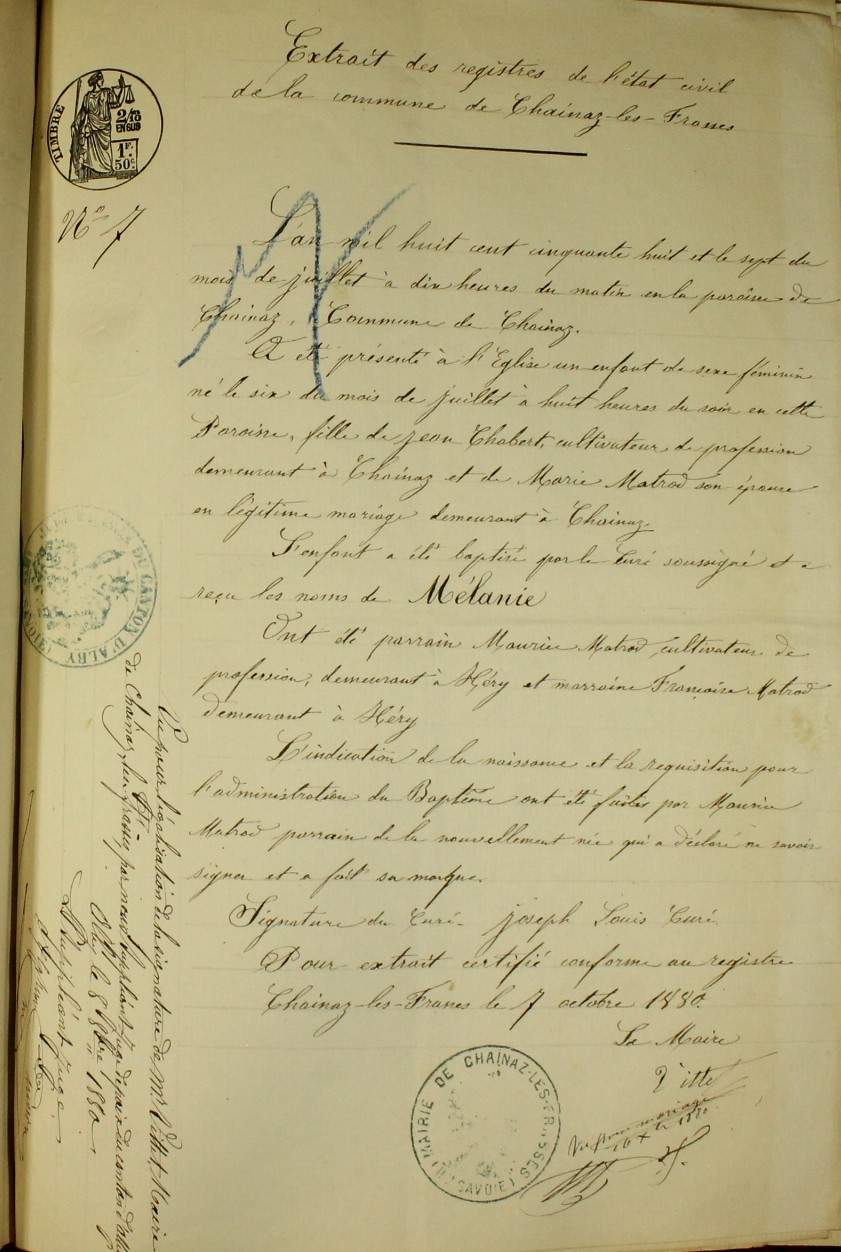 Extrait des registres de l'état civil
de la commune de Chainaz-les-Frasses
TIMBRE
2/10
EN SUS
1F.
50c
No 7
L'an mil huit cent cinquante huit et le sept du
mois de juillet à dix heures du matin en la paroisse de
Chainaz, Commune de Chainaz.
A été présenté à l'Eglise un enfant de sexe féminin
né le six du mois de juillet à huit heures du soir en cette
Paroisse, fille de Jean Chabert, cultivateur de profession
demeurant à Chainaz et de Marie Matrod son épouse
en légitime mariage demeurant à Chainaz.
L'enfant a été baptisé par le Curé soussigné et a
reçu les noms de Mélanie
Ont été parrain Maurice Matrod, cultivateur de
profession, demeurant à Héry et marraine Françoise Matrod
demeurant à Héry
L'indication de la naissance et la requisition pour
l'administration du Baptême ont été faites par Maurice
Matrod parrain de la nouvellement née qui a déclaré ne savoir
signer et a fait sa marque.
Signature du Curé - Joseph Louis Curé
Pour extrait certifié conforme au registre
Chainaz-les-Frasses le 7 octobre 1880.
Le Maire
Vittet
Vu pour mariage
10 1880
MAIRIE DE CHAINAZ-LES-FRASSES
(SAVOIE)
DU CANTON D'ALBY
Vu pour légalisation de la signature de Mr Vittet, Maire
de Chainaz-les-frasses par nous suppléant juge de paix du canton d'Alby
Alby le 8 8bre 1880
Le suppléant juge